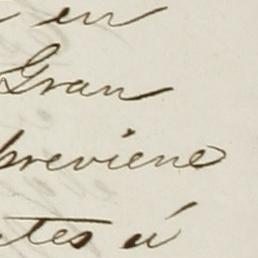 en
Gran
previene
tes á